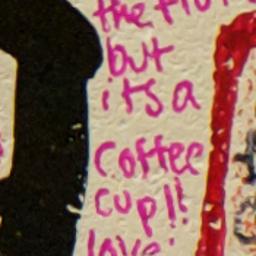 the
but
its a
coffee
cup!!
love: